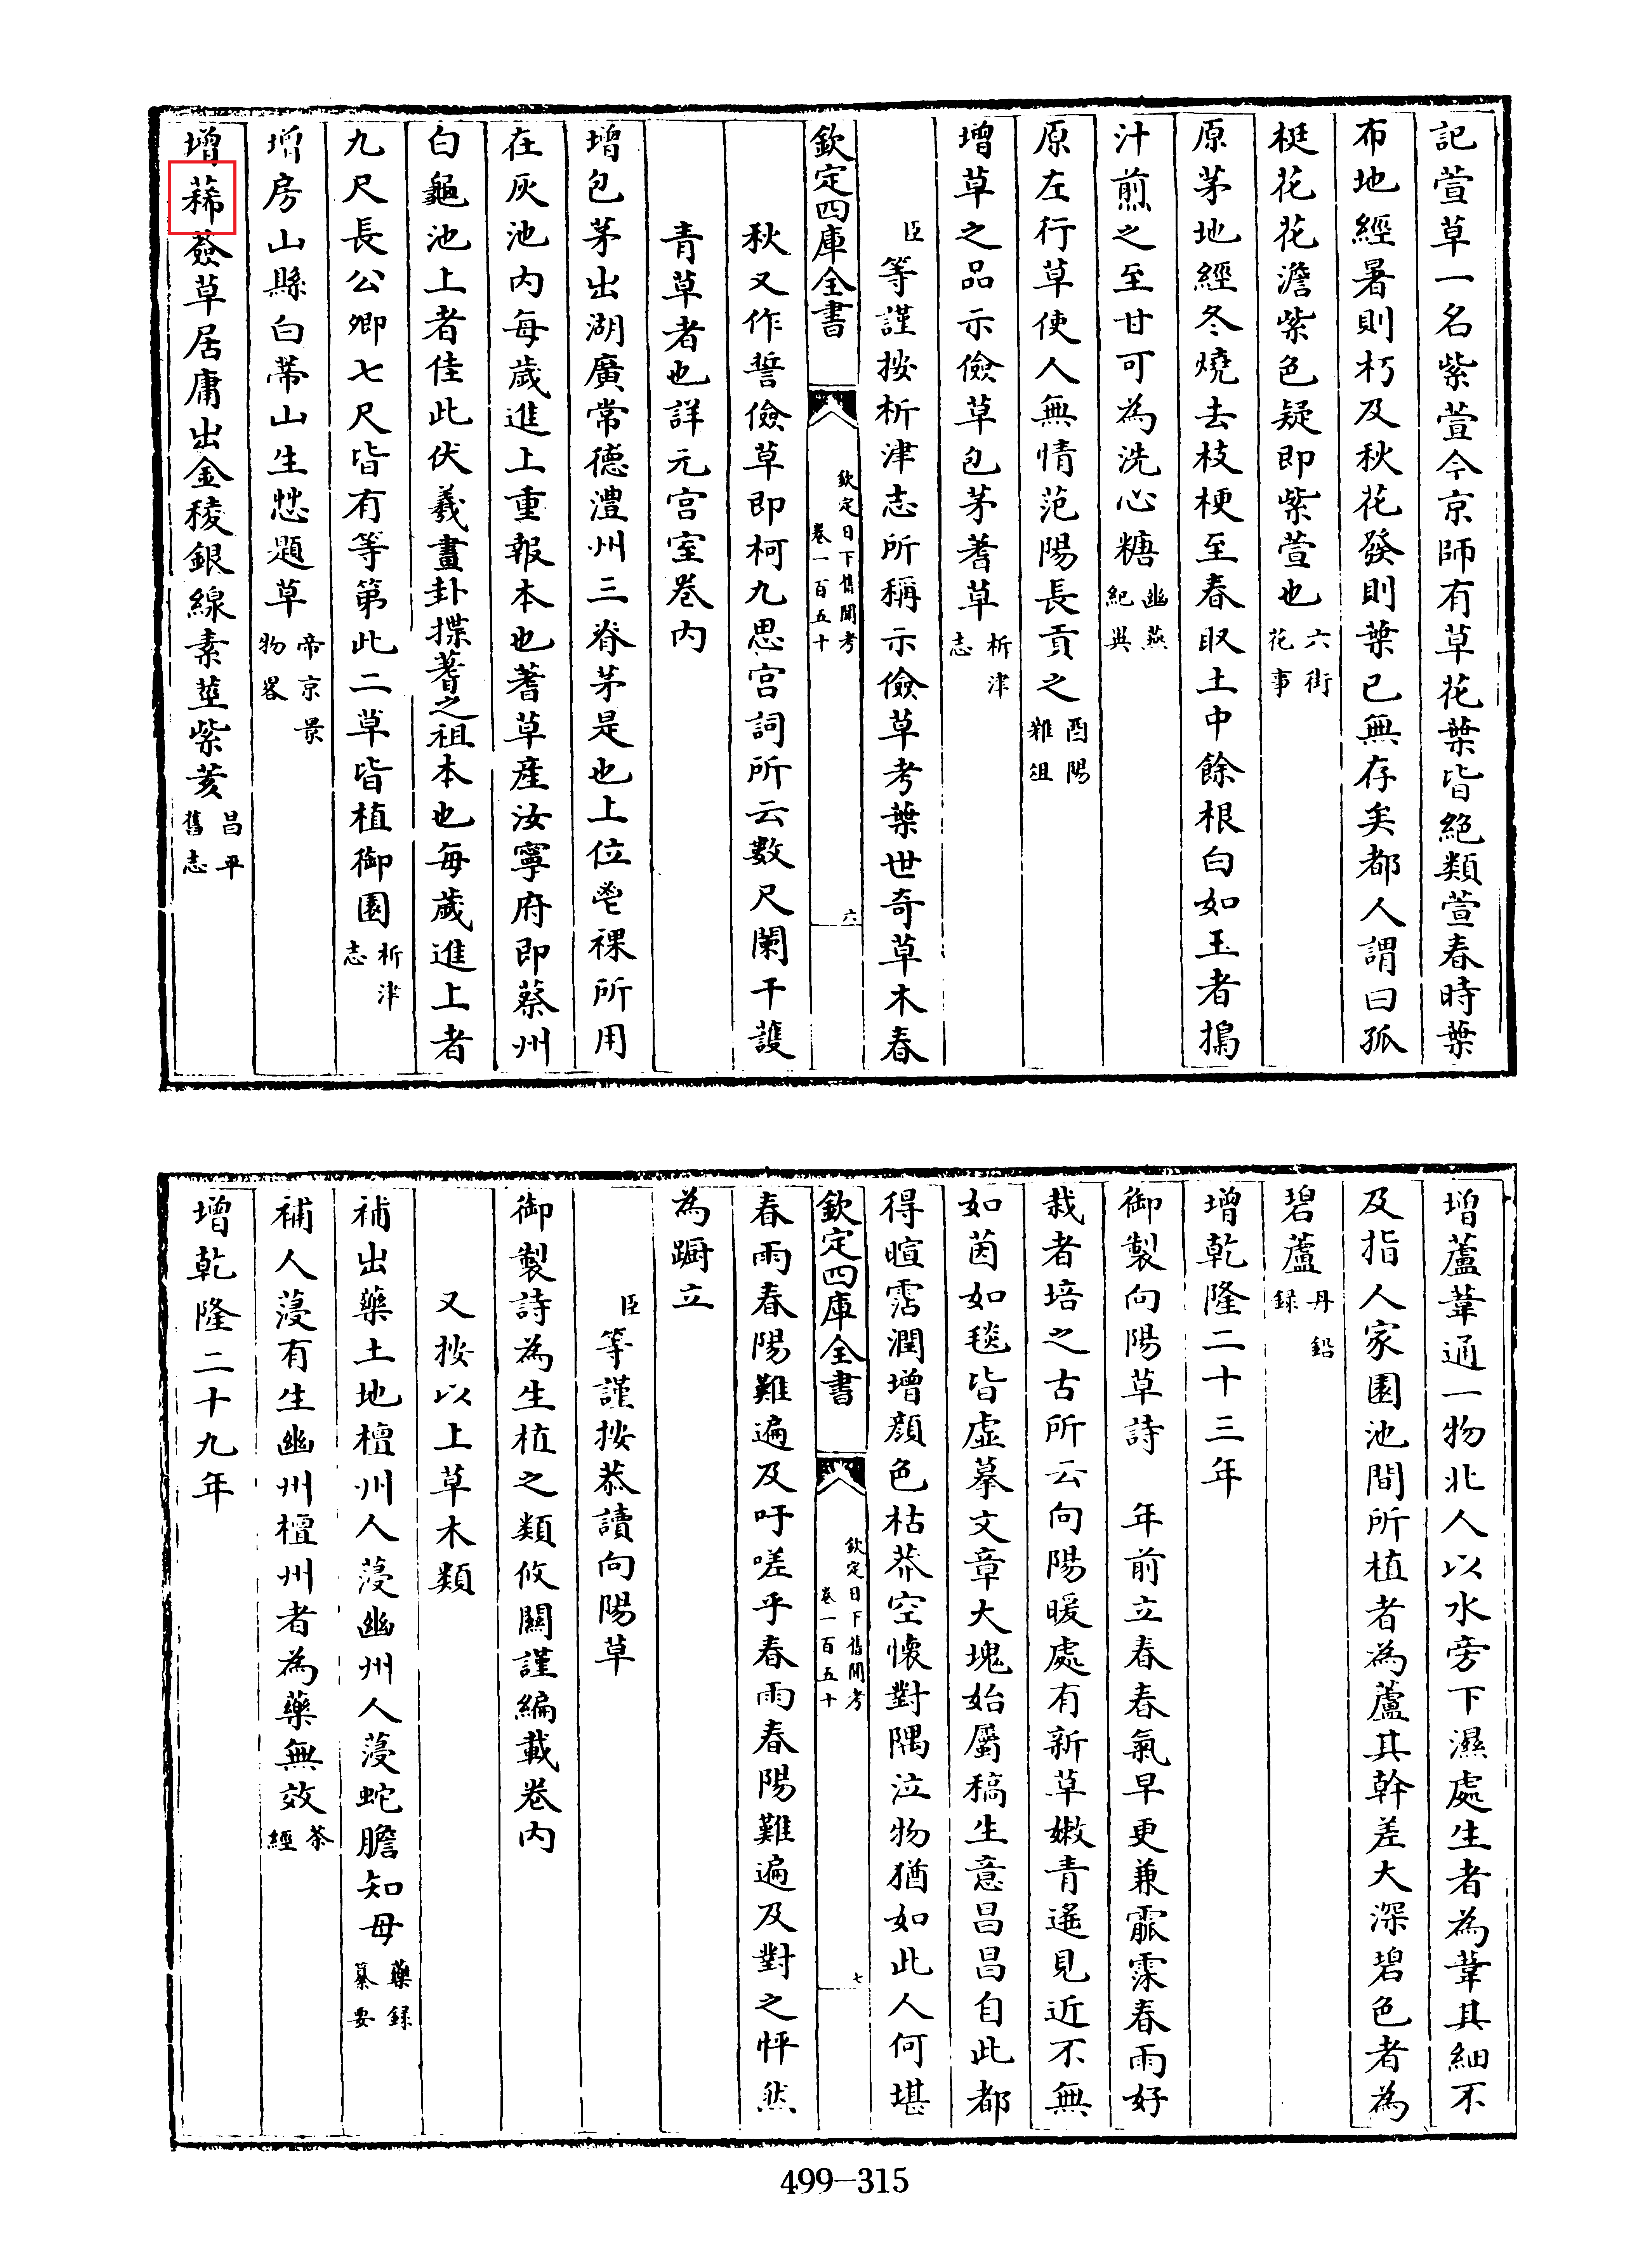 記萱草一名紫萱今京師有草花葉皆絕類萱春時葉
布地經暑則朽及秋花發則葉已無存矣都人謂曰孤
梃花花澹紫色疑即紫萱也六街花事
原茅地經冬燒去枝梗至春取土中餘根白如玉者搗
汁煎之至甘可為洗心糖幽燕紀異
原左行草使人無情范陽長貢之酉陽雜俎
增草之品示儉草包茅蓍草析津志
臣等謹按析津志所稱示儉草考葉世奇草木春
欽定四庫全書
欽定日下舊聞考
卷一百五十
六
秋又作誓儉草即柯九思宮詞所云數尺闌干護
青草者也詳元宮室卷內
增包茅出湖廣常德澧州三脊茅是也上位鬯祼所用
在灰池內每歲進上重報本也蓍草產汝寧府即蔡州
白龜池上者佳此伏羲畫卦揲蓍之祖本也每歲進上者
九尺長公卿七尺皆有等第此二草皆植御園析津志
增房山縣白蔕山生愁題草帝京景物畧
增莃薟草居庸出金稜銀線素莖紫荄昌平舊志
增蘆葦通一物北人以水旁下濕處生者為葦其細不
及指人家園池間所植者為蘆其幹差大深碧色者為
碧蘆丹鉛録
增乾隆二十三年
御製向陽草詩 年前立春春氣早更兼霢霂春雨好
栽者培之古所云向陽暖處有新草嫩青遙見近不無
如茵如毯皆虛摹文章大塊始屬稿生意昌昌自此都
得暄霑潤增顏色枯荄空懷對隅泣物猶如此人何堪
欽定四庫全書
欽定日下舊聞考
卷一百五十
七
春雨春陽難遍及吁嗟乎春雨春陽難遍及對之怦然
為躕立
臣等謹按恭讀向陽草
御製詩為生植之類攸關謹編載卷內
又按以上草木類
補出藥土地檀州人葠幽州人葠蛇膽知母藥録纂要
補人葠有生幽州檀州者為藥無效茶經
增乾隆二十九年
499-315